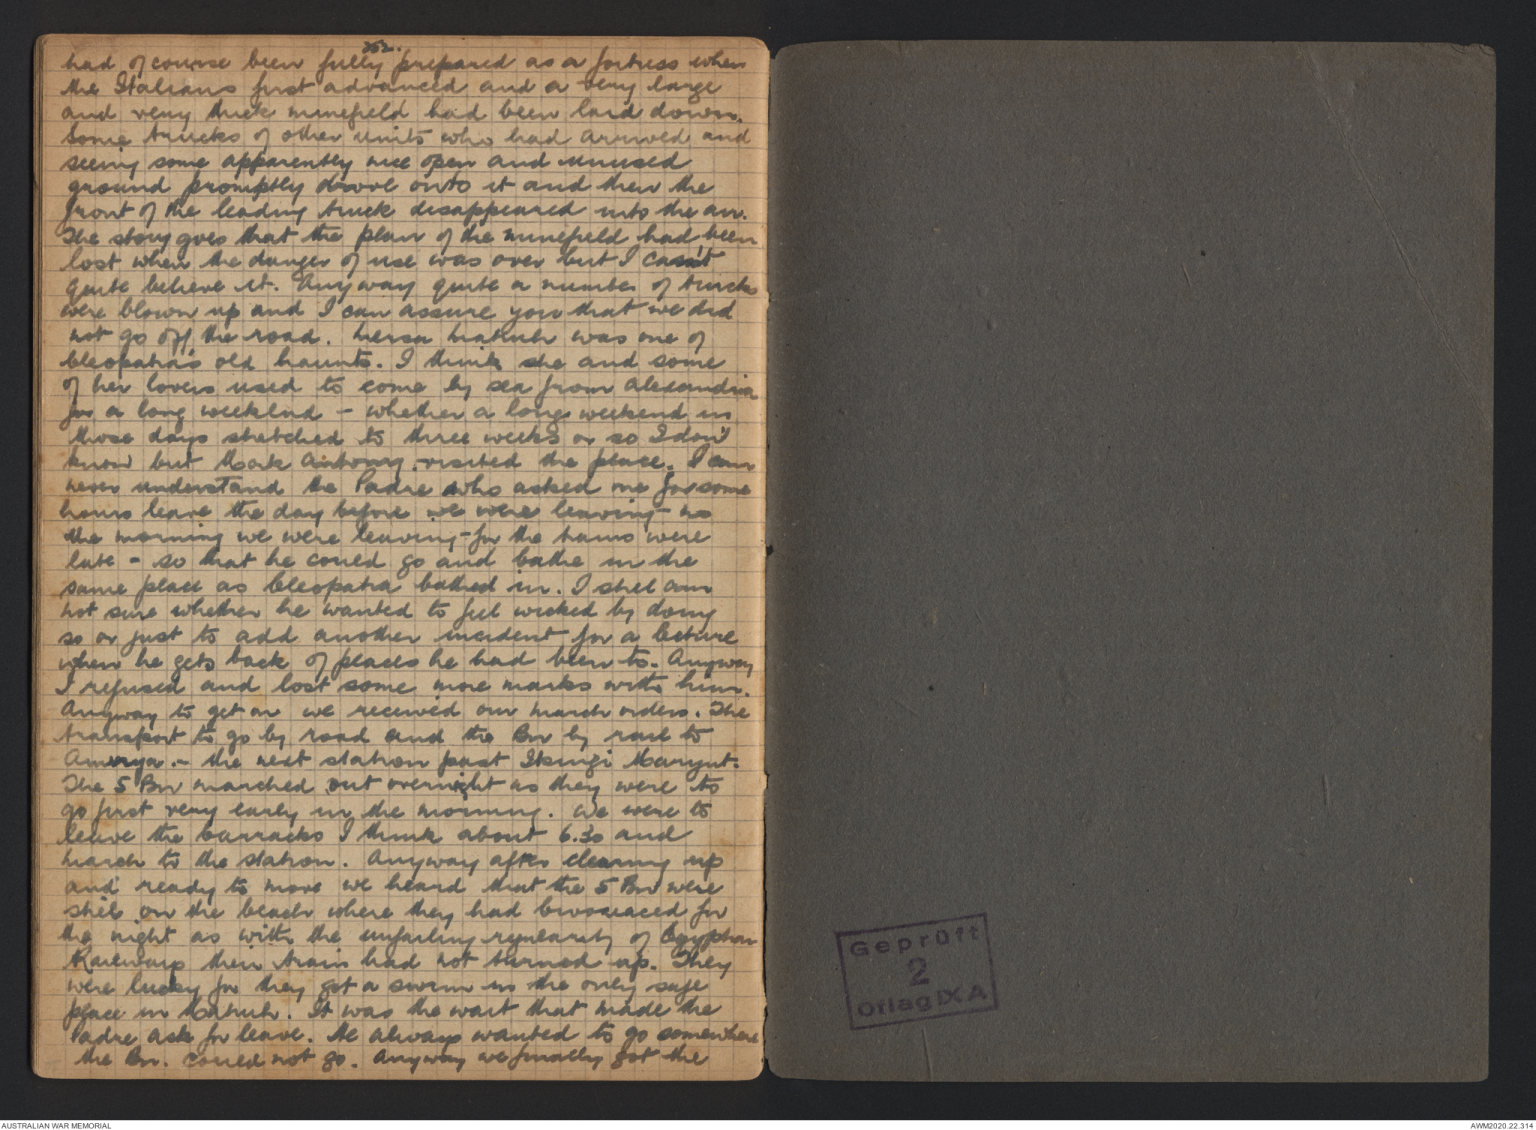 252.
had of course been fully prepared as a fortress when
the Italians first advanced and a very large
and very thick minefield had been laid down.
Some trucks of other units who had arrived and
seeing some apparently nice open and unused
ground promptly drove onto it and then the
front of the leading truck disappeared into the air.
The story goes that the plan of the minefield had been
lost when the danger of use was over but I can't
quite believe it. Anyway quite a number of trucks
were blown up and I can assure you that we did
not go off the road. Mersa Matruh was one of
Cleopatra's old haunts. I think she and some
of her lovers used to come by sea from Alexandria
for a long weekend - whether a long weekend in
those days stretched to three weeks or so I don't
know but Mark Antony visited the place. I can
never understand the Padre who asked me for some
hours leave the day before we were leaving - no
the morning we were leaving - for the trains were
late - so that he could go and bathe in the
same place as Cleopatra bathed in. I still am
not sure whether he wanted to feel wicked by doing
so or just to add another incident for a lecture
when he gets back of places he had been to. Anyway
I refused and lost some more marks with him.
Anyway to get on we received our march orders. The
transport to go by road and the Bn by rail to
Amiriya - the next station past Ikingi Maryut.
The 5 Bn marched out overnight as they were to
go first very early in the morning. We were to
leave the barracks I think about 6.30 and
march to the station. Anyway after cleaning up
and ready to move we heard that the 5 Bn were
still on the beach where they had bivouaced for
the night as with the unfailing regularity of Egyptian
Railways their train had not turned up. They
were lucky for they got a swim in the only safe
place in Matruh. It was the wait that made the
Padre ask for leave. He always wanted to go somewhere
the Bn. could not go. Anyway we finally got the
Geprüft
2
Oflag IX A
AUSTRALIAN WAR MEMORIAL
AWM2020.22.314